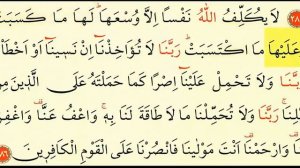 لَا يُكَلِّفُ اللهُ نَفْسًا اِلَّا وُسْعَهَا لَهَا مَا كَسَبَتْ
وَعَلَيْهَا مَا اكْتَسَبَتْ رَبَّنَا لَا تُؤَاخِذْنَا اِنْ نَسِينَا اَوْ اَخْطَأْ
رَبَّنَا وَلَا تَحْمِلْ عَلَيْنَا اِصْرًا كَمَا حَمَلْتَهُ عَلَى الَّذِينَ مِنْ
رَبَّنَا وَلَا تُحَمِّلْنَا مَا لَا طَاقَةَ لَنَا بِهِ وَاعْفُ عَنَّا وَاغْفِرْ
وَارْحَمْنَا اَنْتَ مَوْلٰينَا فَانْصُرْنَا عَلَى الْقَوْمِ الْكَافِرِينَ